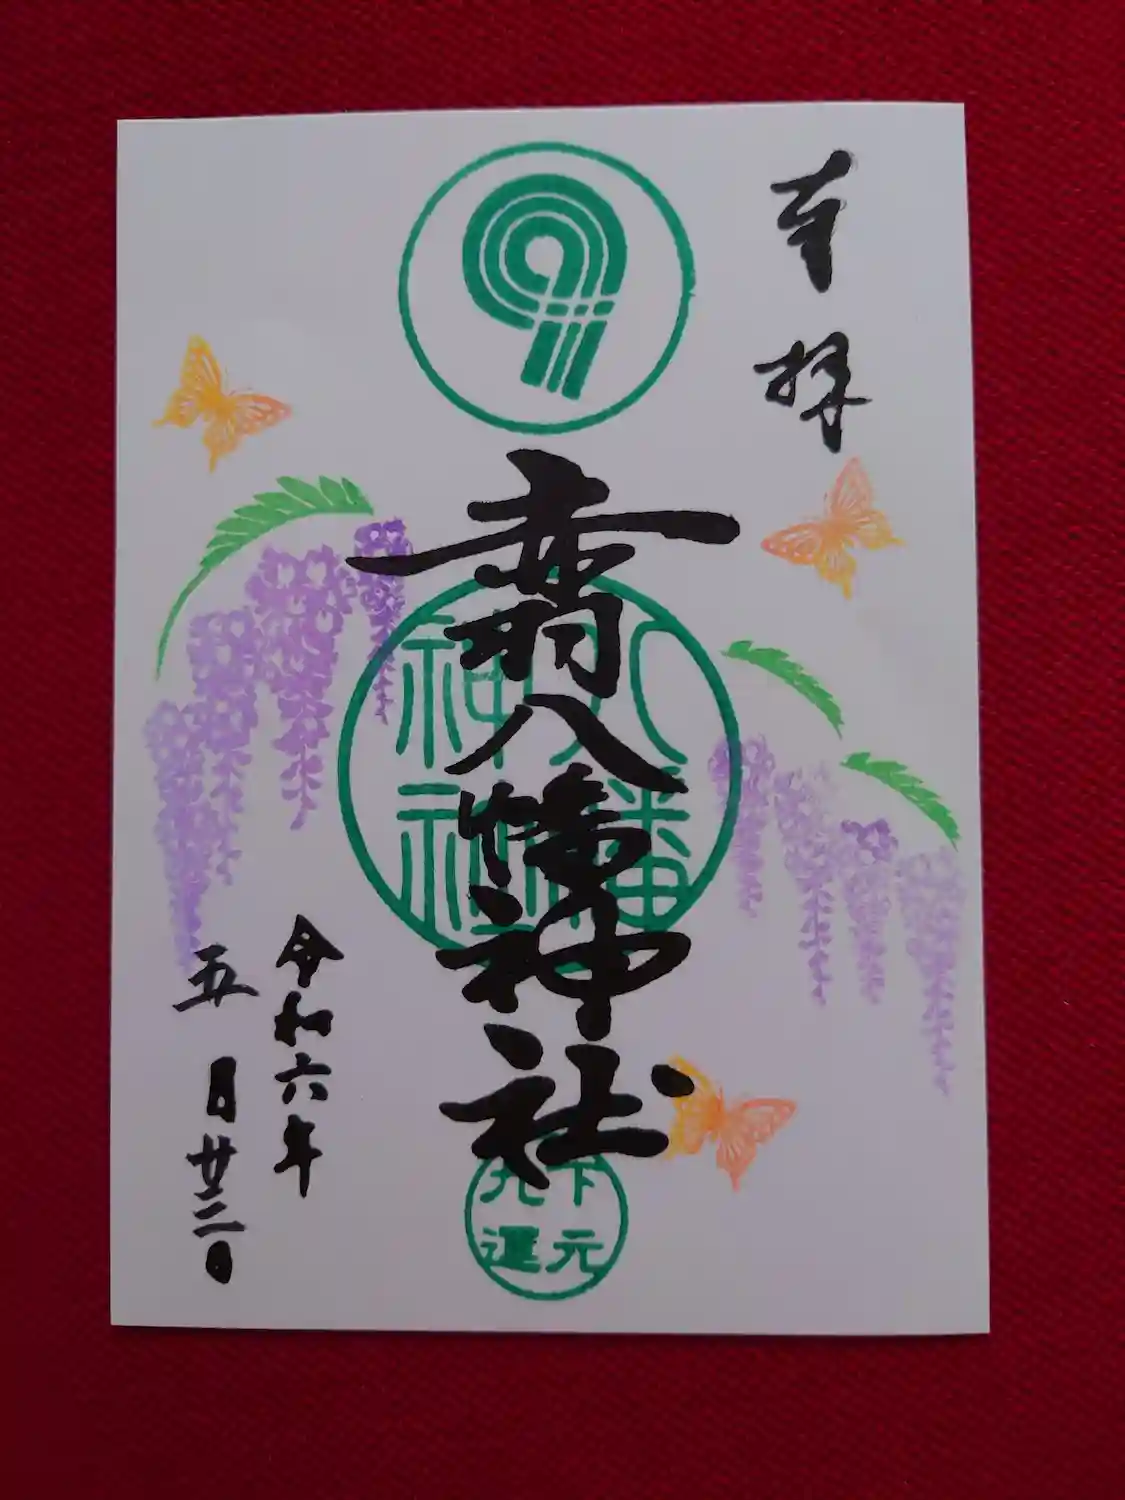 奉拝
9
赤羽八幡神社
八幡
神社
下元
九運
令和六年
五月廿三日